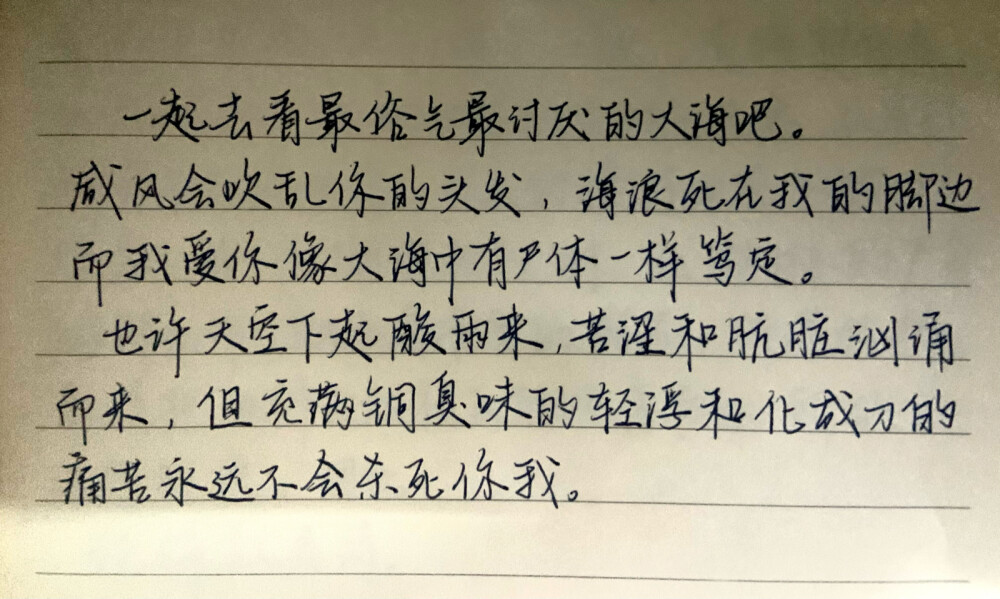 一起去看最俗气最讨厌的大海吧。
咸风会吹乱你的头发，海浪死在我的脚边
而我爱你像大海中有尸体一样笃定。
也许天空下起酸雨来，苦涩和肮脏汹涌
而来，但充满铜臭味的轻浮和化成刀的
痛苦永远不会杀死你我。